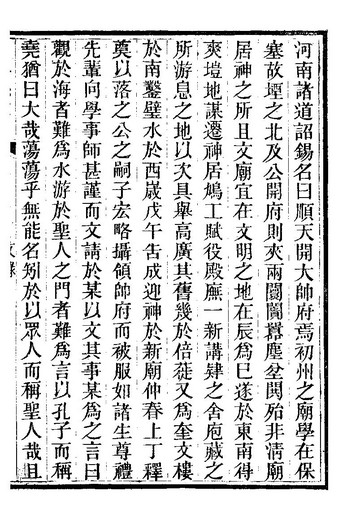 河南諸道詔錫名曰順天開大帥府焉初州之廟學在保
塞故堙之北及公開府則夾兩闤闠囂塵坌閧殆非淸廟
居神之所且文廟宜在文明之地在辰爲巳遂於東南得
爽塏地謀遷神居鳩工賦役殿廡一新講肄之舍庖藏之
所游息之地以次具舉高廣其舊幾於倍蓰又爲奎文樓
於南鑿壁水於西歲戊午吿成迎神於新廟仲春上丁釋
奠以落之公之嗣子宏略攝領帥府而被服如諸生尊禮
先輩向學事師甚謹而文請於某以文其事某爲之言曰
觀於海者難爲水游於聖人之門者難爲言以孔子而稱
堯猶曰大哉蕩蕩乎無能名矧於以眾人而稱聖人哉且